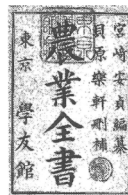 宮崎安貞編纂
貝原樂軒刪補
農業全書
東京 學友館